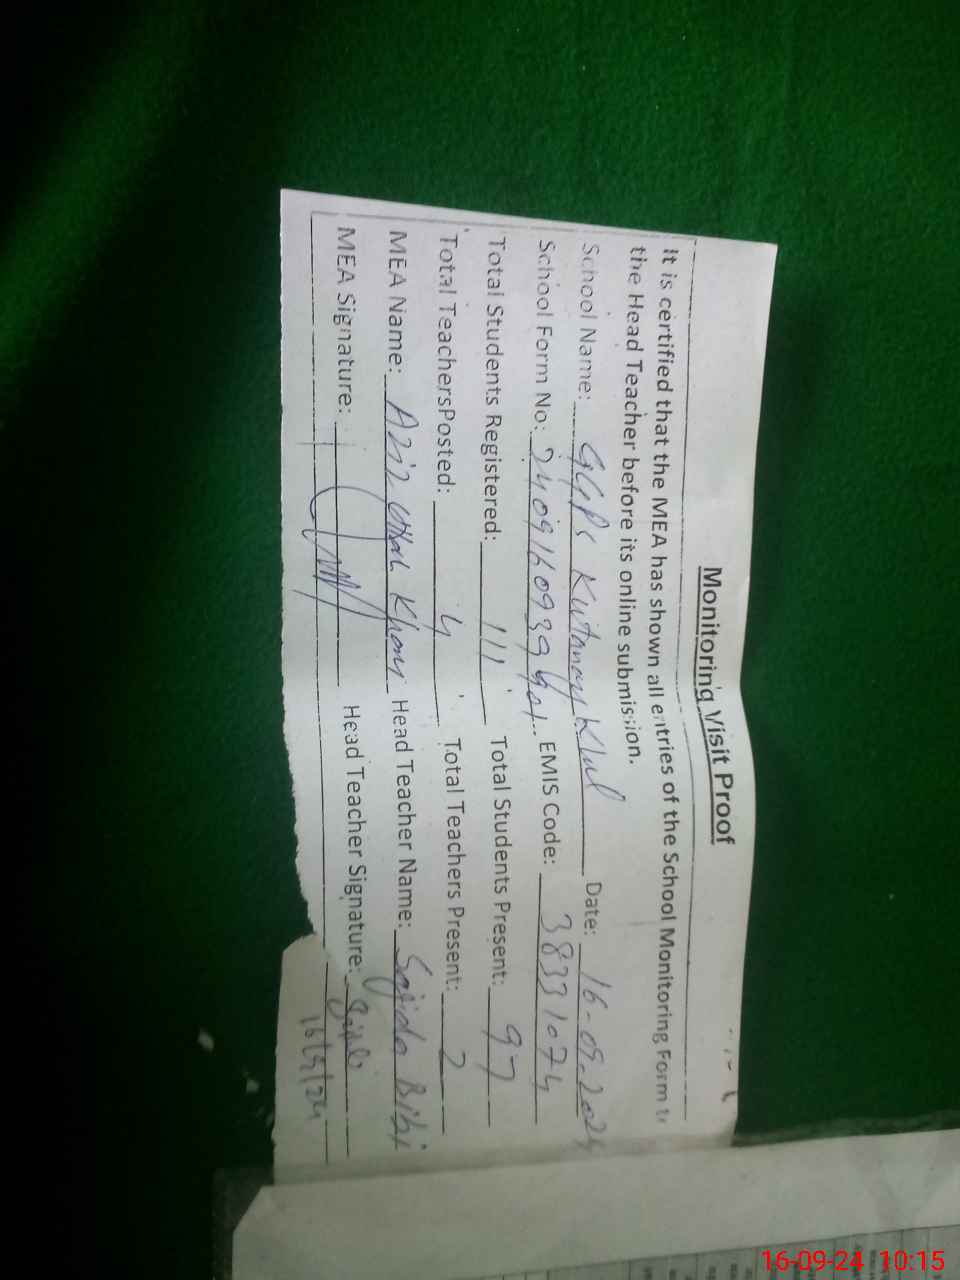 Monitoring Visit Proof
It is certified that the MEA has shown all entries of the School Monitoring Form to
the Head Teacher before its online submission.
School Name: GGPS Kutanay Klul Date: 16-09-2024
School Form No: 240916093 EMIS Code: 3833 1074
Total Students Registered: 111 Total Students Present: 97
Total TeachersPosted: 4 Total Teachers Present: 2
MEA Name: Aziz Ullah Khan Head Teacher Name: Sajida Bibi
MEA Signature: Head Teacher Signature: Sajida
16/9/24
16-09-24 10:15